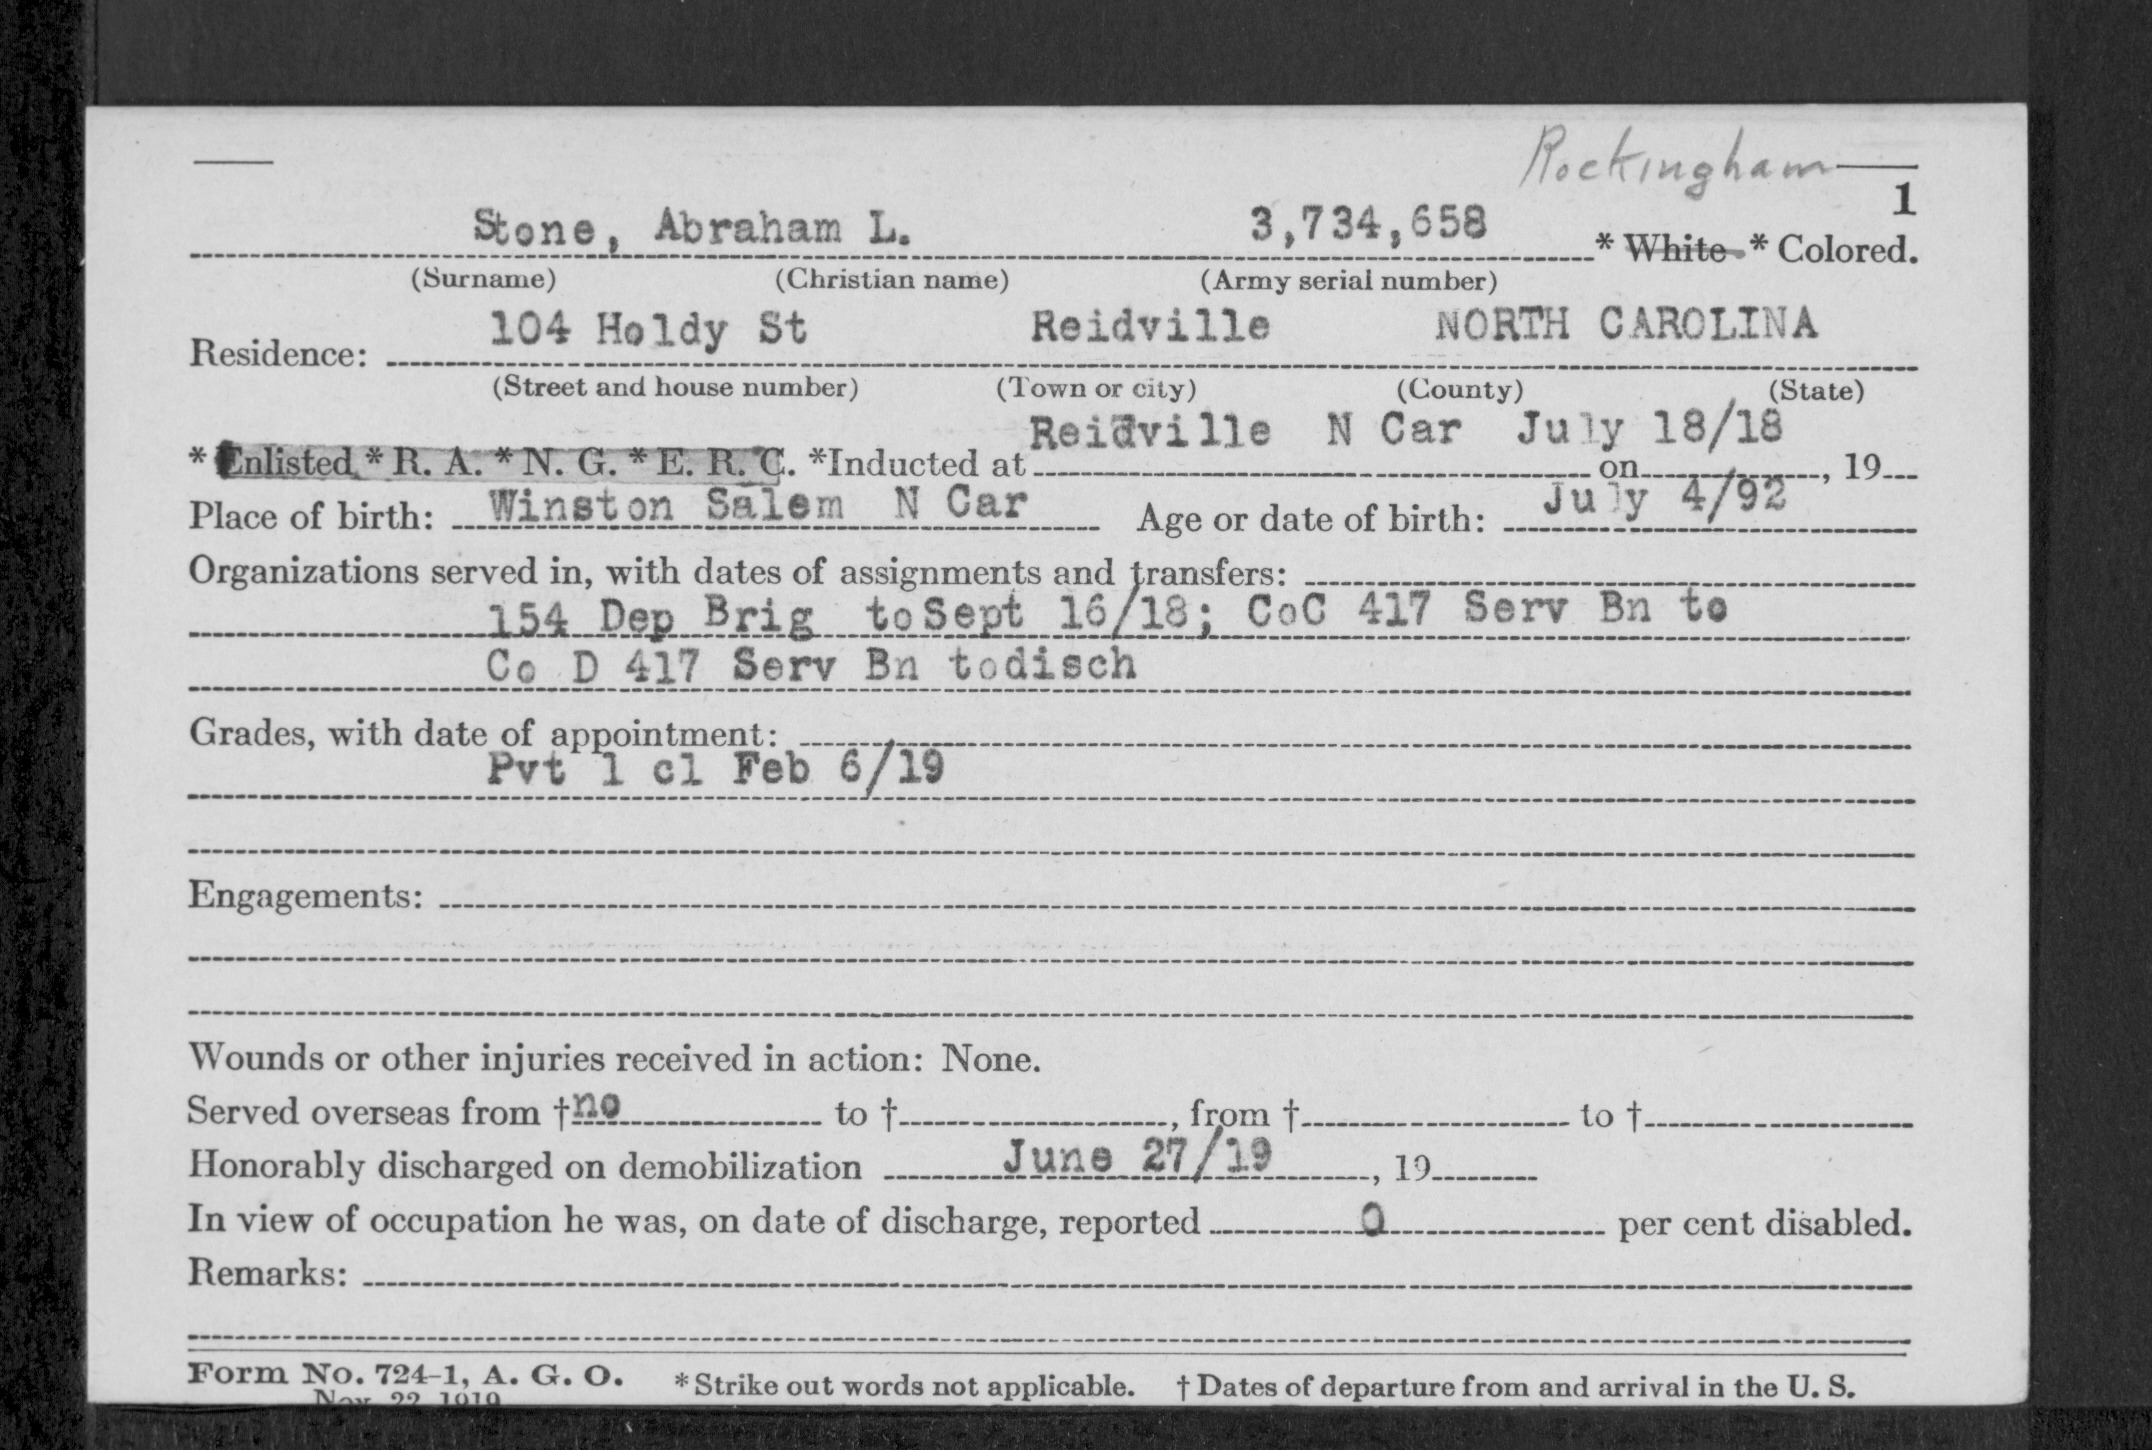 Rockingham
1
Stone, Abraham L. 3,734,658 * White * Colored.
(Surname) (Christian name) (Army serial number)
104 Holdy St Reidville NORTH CAROLINA
Residence:
(Street and house number) (Town or city) (County) (State)
Reidville N Car July 18/18
* Enlisted * R. A. * N. G. * E. R. C. *Inducted at on , 19
Place of birth: Winston Salem N Car Age or date of birth: July 4/92
Organizations served in, with dates of assignments and transfers:
154 Dep Brig toSept 16/18; CoC 417 Serv Bn to
Co D 417 Serv Bn todisch
Grades, with date of appointment:
Pvt 1 cl Feb 6/19
Engagements:
Wounds or other injuries received in action: None.
Served overseas from †no to † , from † to †
Honorably discharged on demobilization June 27/19 , 19
In view of occupation he was, on date of discharge, reported 0 per cent disabled.
Remarks:
Form No. 724-1, A. G. O. * Strike out words not applicable. † Dates of departure from and arrival in the U. S.
Nov. 22, 1919